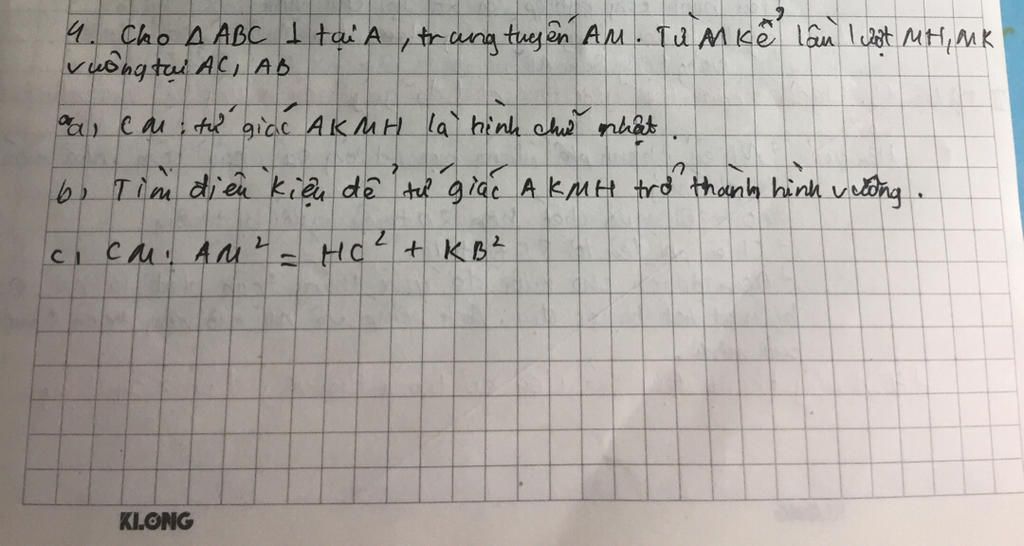 4. Cho Δ ABC ⊥ tại A, trung tuyến AM. Từ M kẻ lần lượt MH, MK
vuông tại AC, AB
a, CM: tứ giác AKMH là hình chữ nhật.
b, Tìm điều kiện để tứ giác AKMH trở thành hình vuông.
c, CM: AM² = HC² + KB²
KLONG